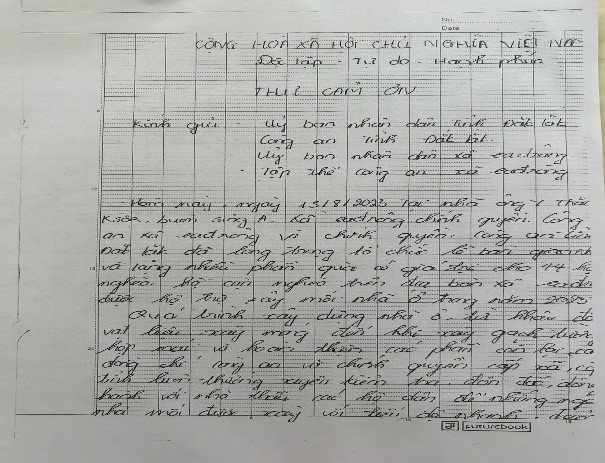 No.
Date
CỘNG HOÀ XÃ HỘI CHỦ NGHĨA VIỆT NA
Độc lập - Tự do - Hạnh phúc
THƯ CẢM ƠN
Kính gửi - Uỷ ban nhân dân tỉnh Đắk Lắk
Công an tỉnh Đắk Lắk.
Uỷ ban nhân dân xã eadrông
- Tập thể công an xã eadrông
- Hôm nay, ngày 15/8/2025 tại nhà ông Y
Ksơr, buôn A. Xã eadrông chính quyền. Công
an xã eadrông và chính quyền. Công an
Đắk Lắk đã long trọng tổ chức lễ bàn
và tặng nhiều phần quà có giá trị cho 44 hộ
nghèo. hộ cận nghèo trên địa bàn xã
được hỗ trợ xây mới nhà ở trong năm 2025
Quá trình xây dựng nhà ở, từ khâu
vật liệu xây móng đến khi xây gạch
lợp mái và hoàn thiện các phần còn lại
đồng chí công an và chính quyền cấp xã,
tỉnh luôn thường xuyên kiểm tra, đôn đốc, đồng
hành với nhà thầu các hộ dân để những
nhà mới được xây với tiến độ nhanh,
futurebook